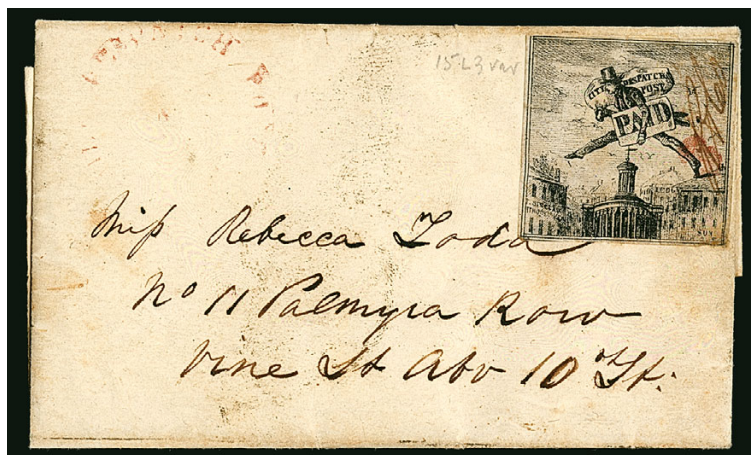 DESPATCH PO
15L3 var
CITY DESPATCH
POST
PAID
Miß Rebecca Toda
No 11 Palmyra Row
Vine St Abv 10th St: